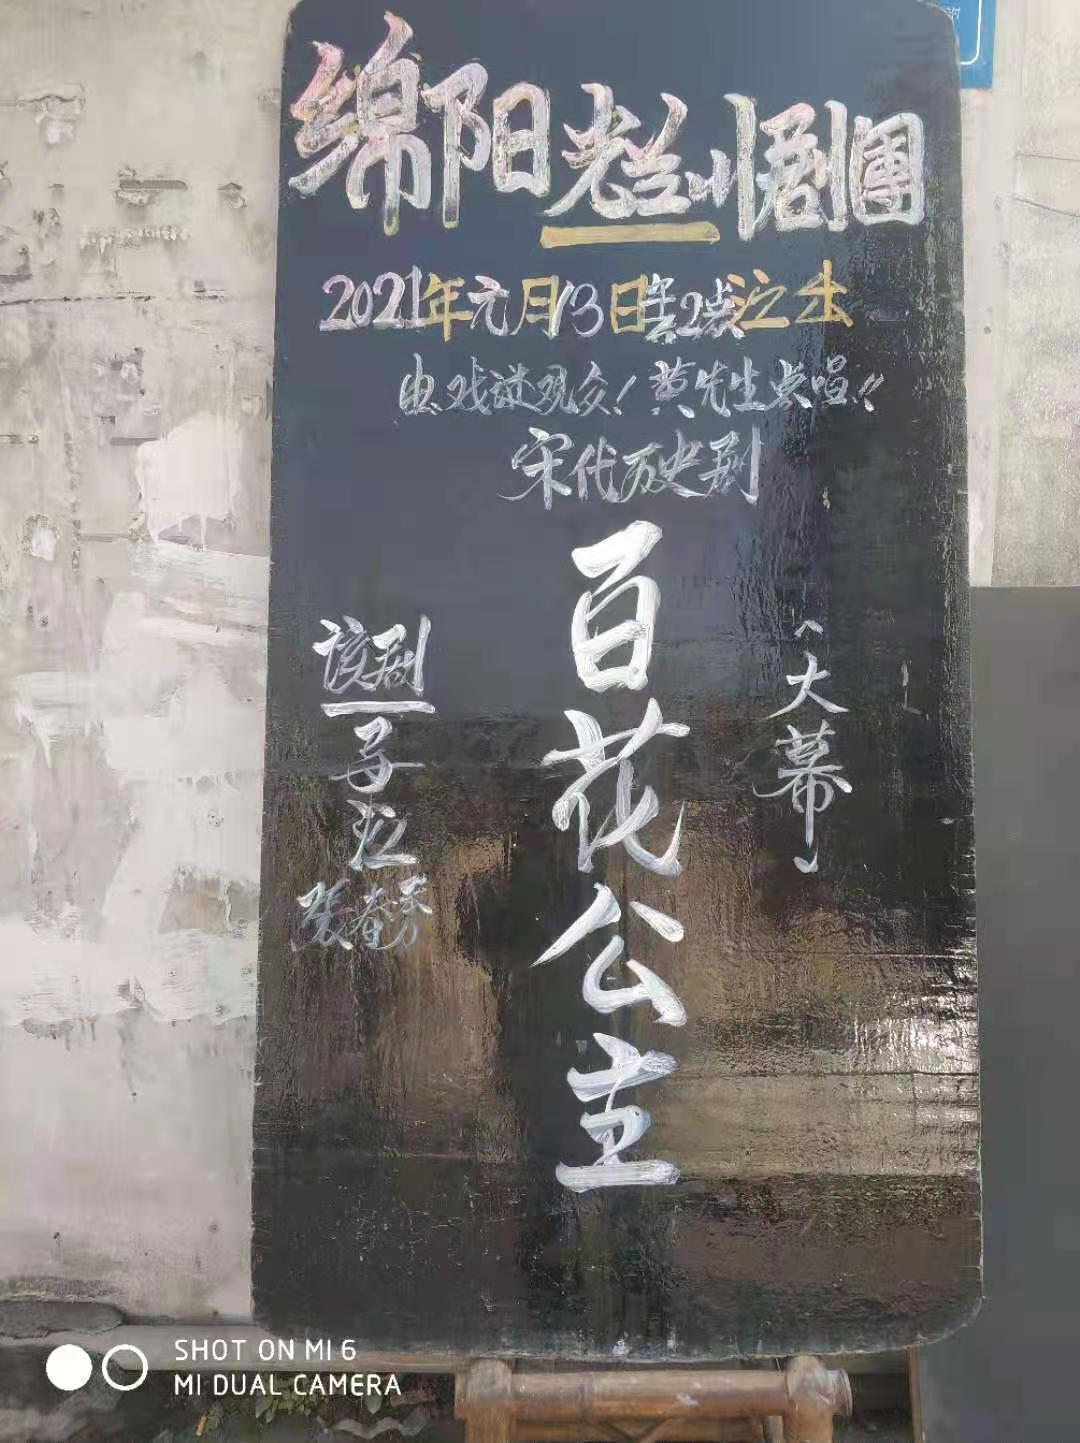 绵阳老兰川剧團
2021年元月13日午2点演出
由戏迷观众！黄先生点唱！！
宋代历史剧
百花公主
（大幕）
该剧
张春秀
SHOT ON MI 6
MI DUAL CAMERA